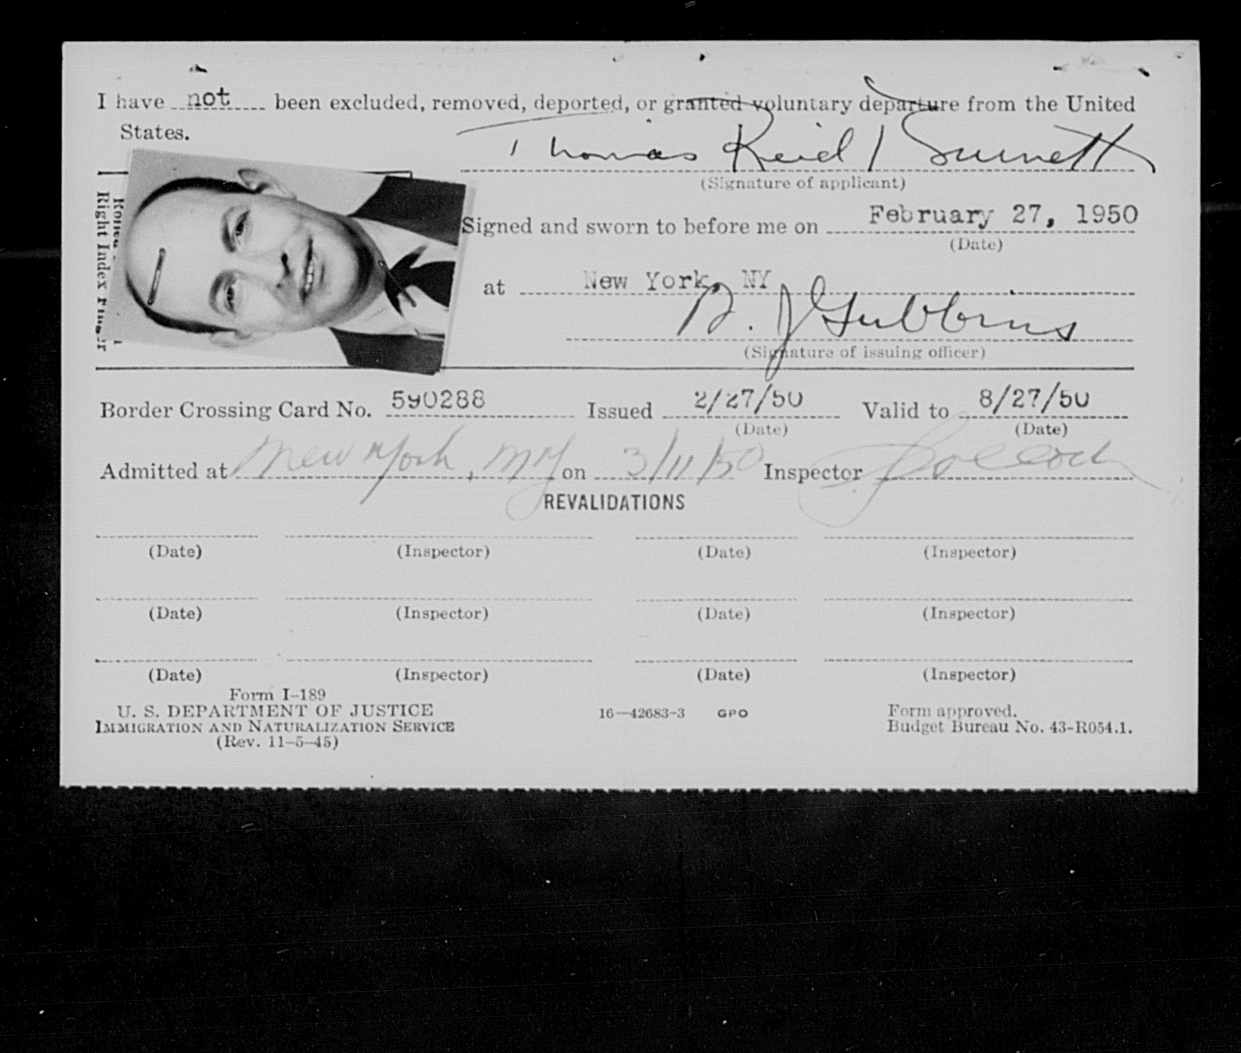 I have not been excluded, removed, deported, or granted voluntary departure from the United
States.
Thomas Reid Burnett
(Signature of applicant)
Right Index Finger
Signed and sworn to before me on February 27, 1950
(Date)
at New York, NY
B. J. Gubbins
(Signature of issuing officer)
Border Crossing Card No. 590288 Issued 2/27/50 Valid to 8/27/50
(Date) (Date)
Admitted at New York, NY on 3/11/50 Inspector
REVALIDATIONS
(Date) (Inspector) (Date) (Inspector)
(Date) (Inspector) (Date) (Inspector)
(Date) (Inspector) (Date) (Inspector)
Form I-189
U. S. DEPARTMENT OF JUSTICE 16—42683-3 GPO Form approved.
IMMIGRATION AND NATURALIZATION SERVICE Budget Bureau No. 43-R054.1.
(Rev. 11-5-45)